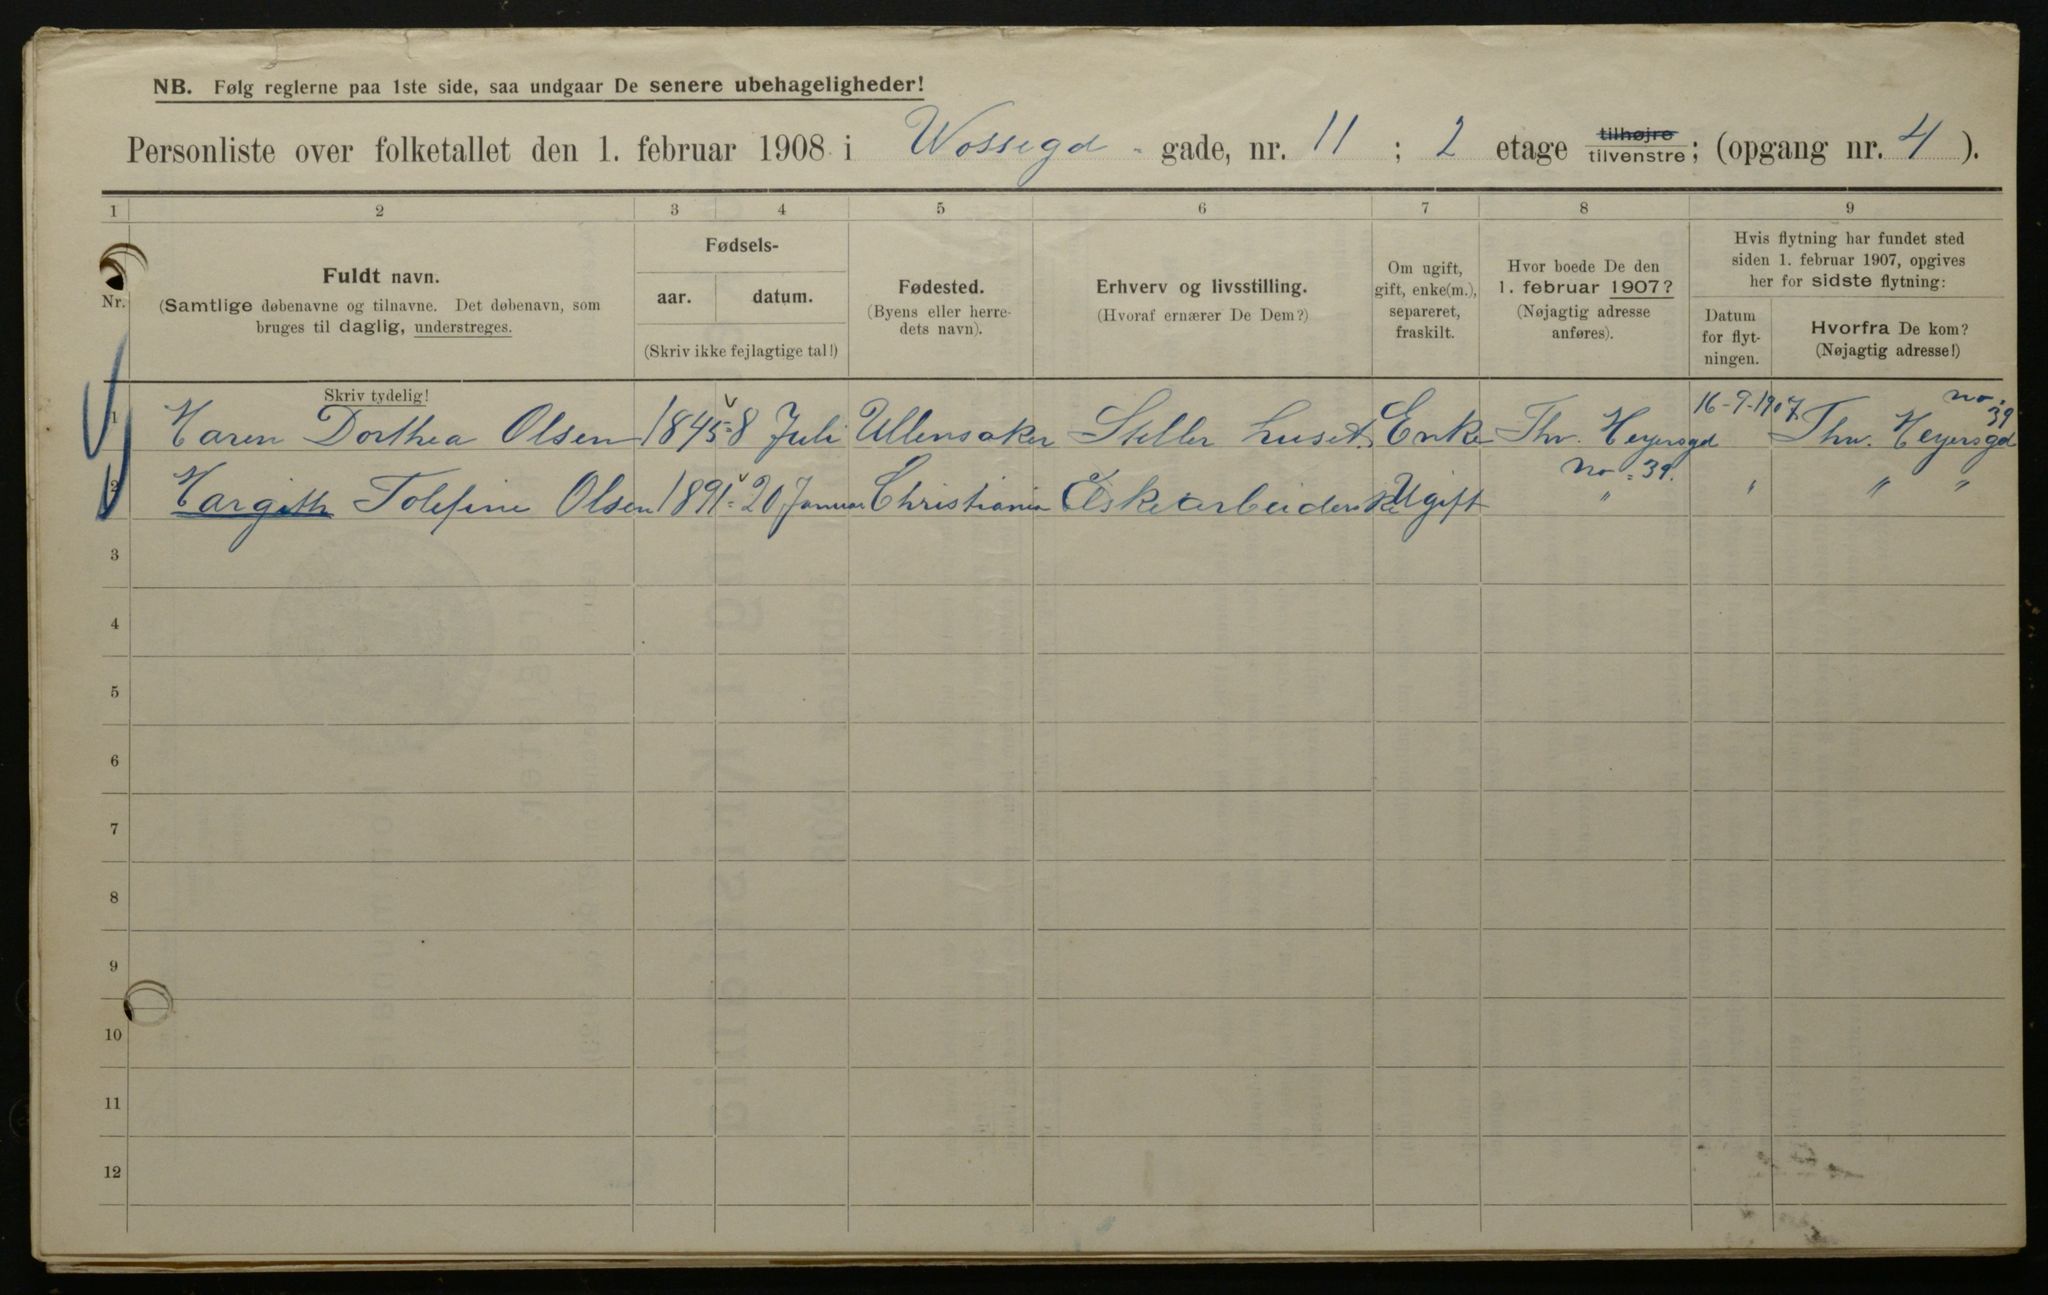 NB. Følg reglerne paa 1ste side, saa undgaar De senere ubehageligheder!
Personliste over folketallet den 1. februar 1908 i Wossegd - gade, nr. 11 ; 2 etage tilhøjre tilvenstre; (opgang nr. 4 ).
1 2 3 4 5 6 7 8 9
Nr.
Fuldt navn.
(Samtlige døbenavne og tilnavne. Det døbenavn, som
bruges til daglig, understreges.
Skriv tydelig!
Fødsels-
aar. datum.
(Skriv ikke fejlagtige tal!)
Fødested.
(Byens eller herre-
dets navn).
Erhverv og livsstilling.
(Hvoraf ernærer De Dem?)
Om ugift,
gift, enke(m.),
separeret,
fraskilt.
Hvor boede De den
1. februar 1907?
(Nøjagtig adresse
anføres).
Hvis flytning har fundet sted
siden 1. februar 1907, opgives
her for sidste flytning:
Datum
for flyt-
ningen.
Hvorfra De kom?
(Nøjagtig adresse!)
1 Maren Dorthea Olsen 1845 - 8 Juli Ullensaker Steller huset Enke Thv. Meyersgd no: 39. 16-9-1907. Thv. Meyersgd no. 39
2 Margith Josefine Olsen 1891 - 20 Januar Christiania Eskearbeiderske Ugift " " " "
3
4
5
6
7
8
9
10
11
12